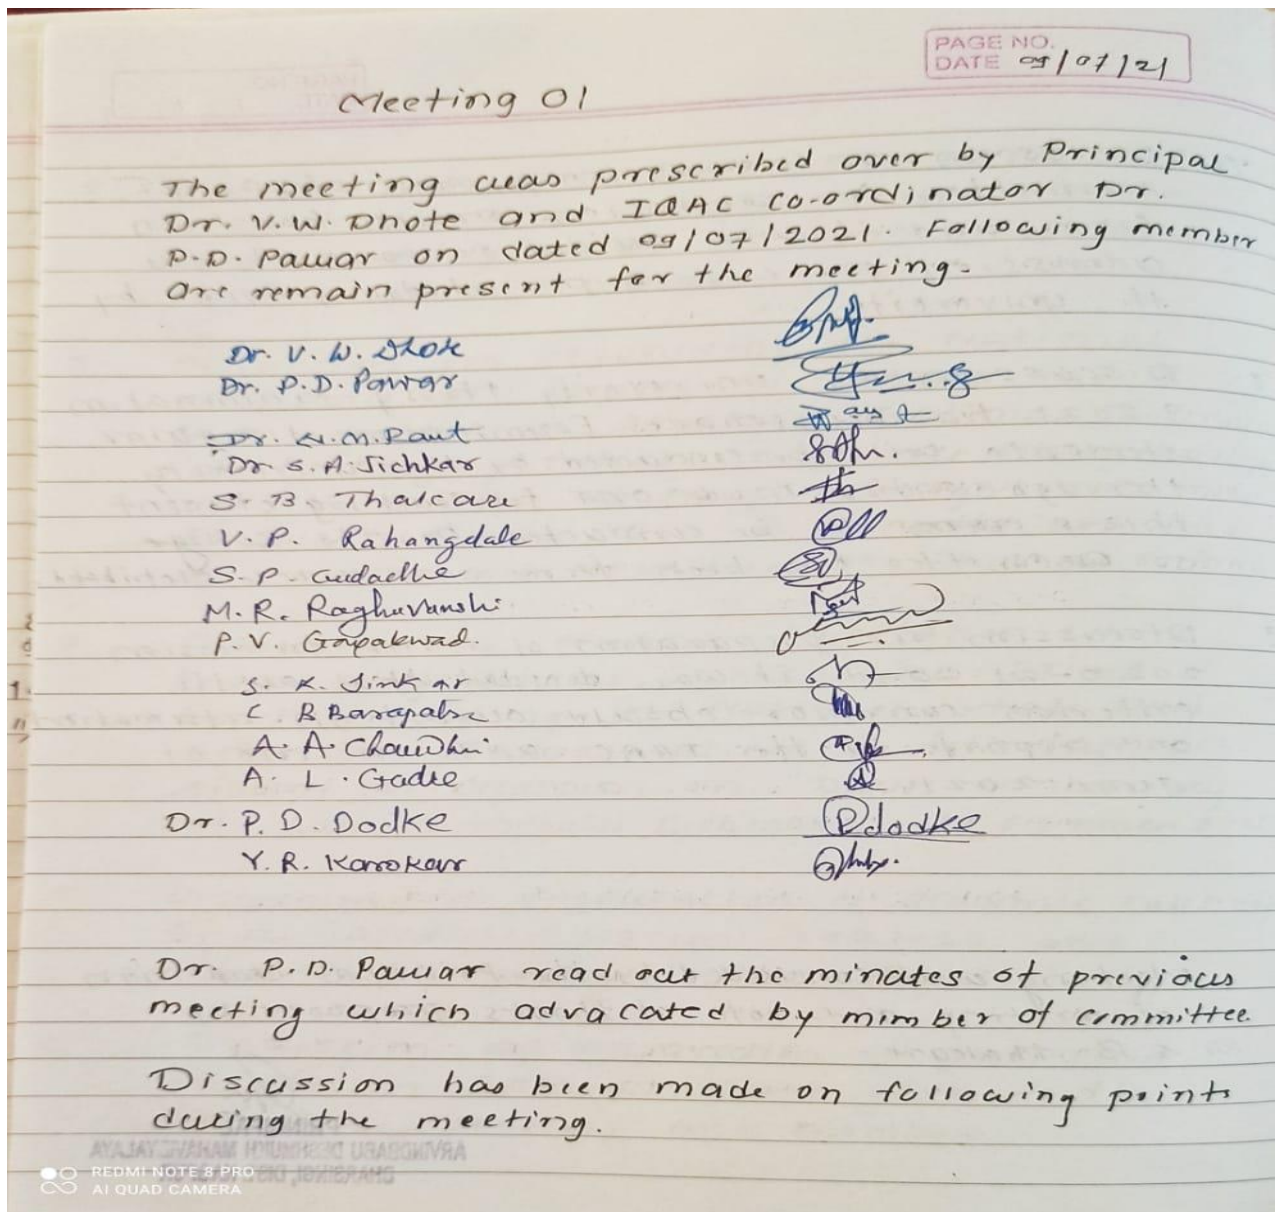 PAGE NO.
DATE 09/07/21
Meeting 01
The meeting was prescribed over by Principal
Dr. V.W. Dhote and IQAC co-ordinator Dr.
P.D. Pawar on dated 09/07/2021. Following member
are remain present for the meeting.
Dr. V. W. Dhote
Dr. P.D. Pawar
Dr. N.M. Raut
Dr. S. A. Jichkar
S. B. Thakare
V. P. Rahangdale
S. P. Gudadhe
M. R. Raghuvanshi
P. V. Gayakwad.
S. K. Tinkar
C. B Barapatre
A. A. Chaudhri
A. L. Gadre
Dr. P. D. Dodke Pdodke
Y. R. Karokar
Dr. P.D. Pawar read out the minates of previous
meeting which advacated by mimber of committee
Discussion has been made on following points
during the meeting.
ARVINDBABU DESHMUKH MAHAVIDYALAYA
BHARSINGI, DIST.
REDMI NOTE 8 PRO
AI QUAD CAMERA